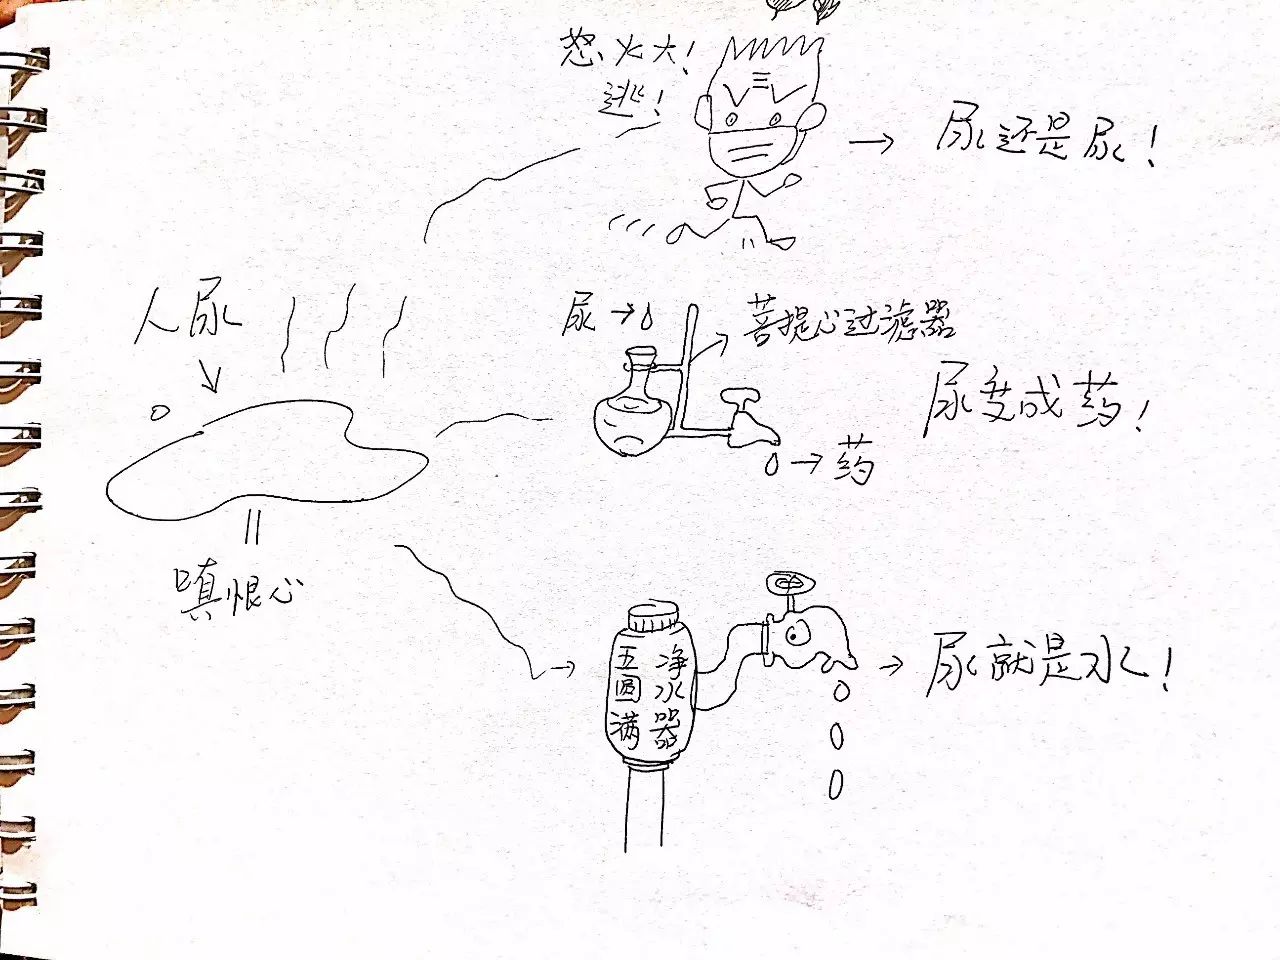 怒火大！
逃！
尿还是尿！
人尿
尿
菩提心过滤器
尿变成药！
药
嗔恨心
五圆满
净水器
尿就是水！